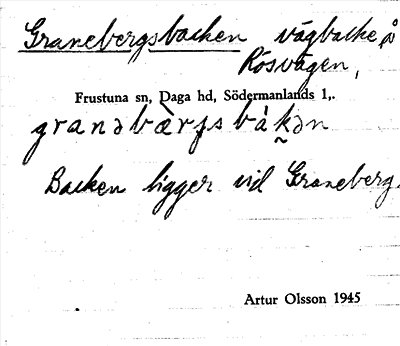 Granebergsbacken vägbacke å
Rösvägen,
Frustuna sn, Daga hd, Södermanlands l,.
granəbærjs bàkən
Backen ligger vid Graneberg.
Artur Olsson 1945